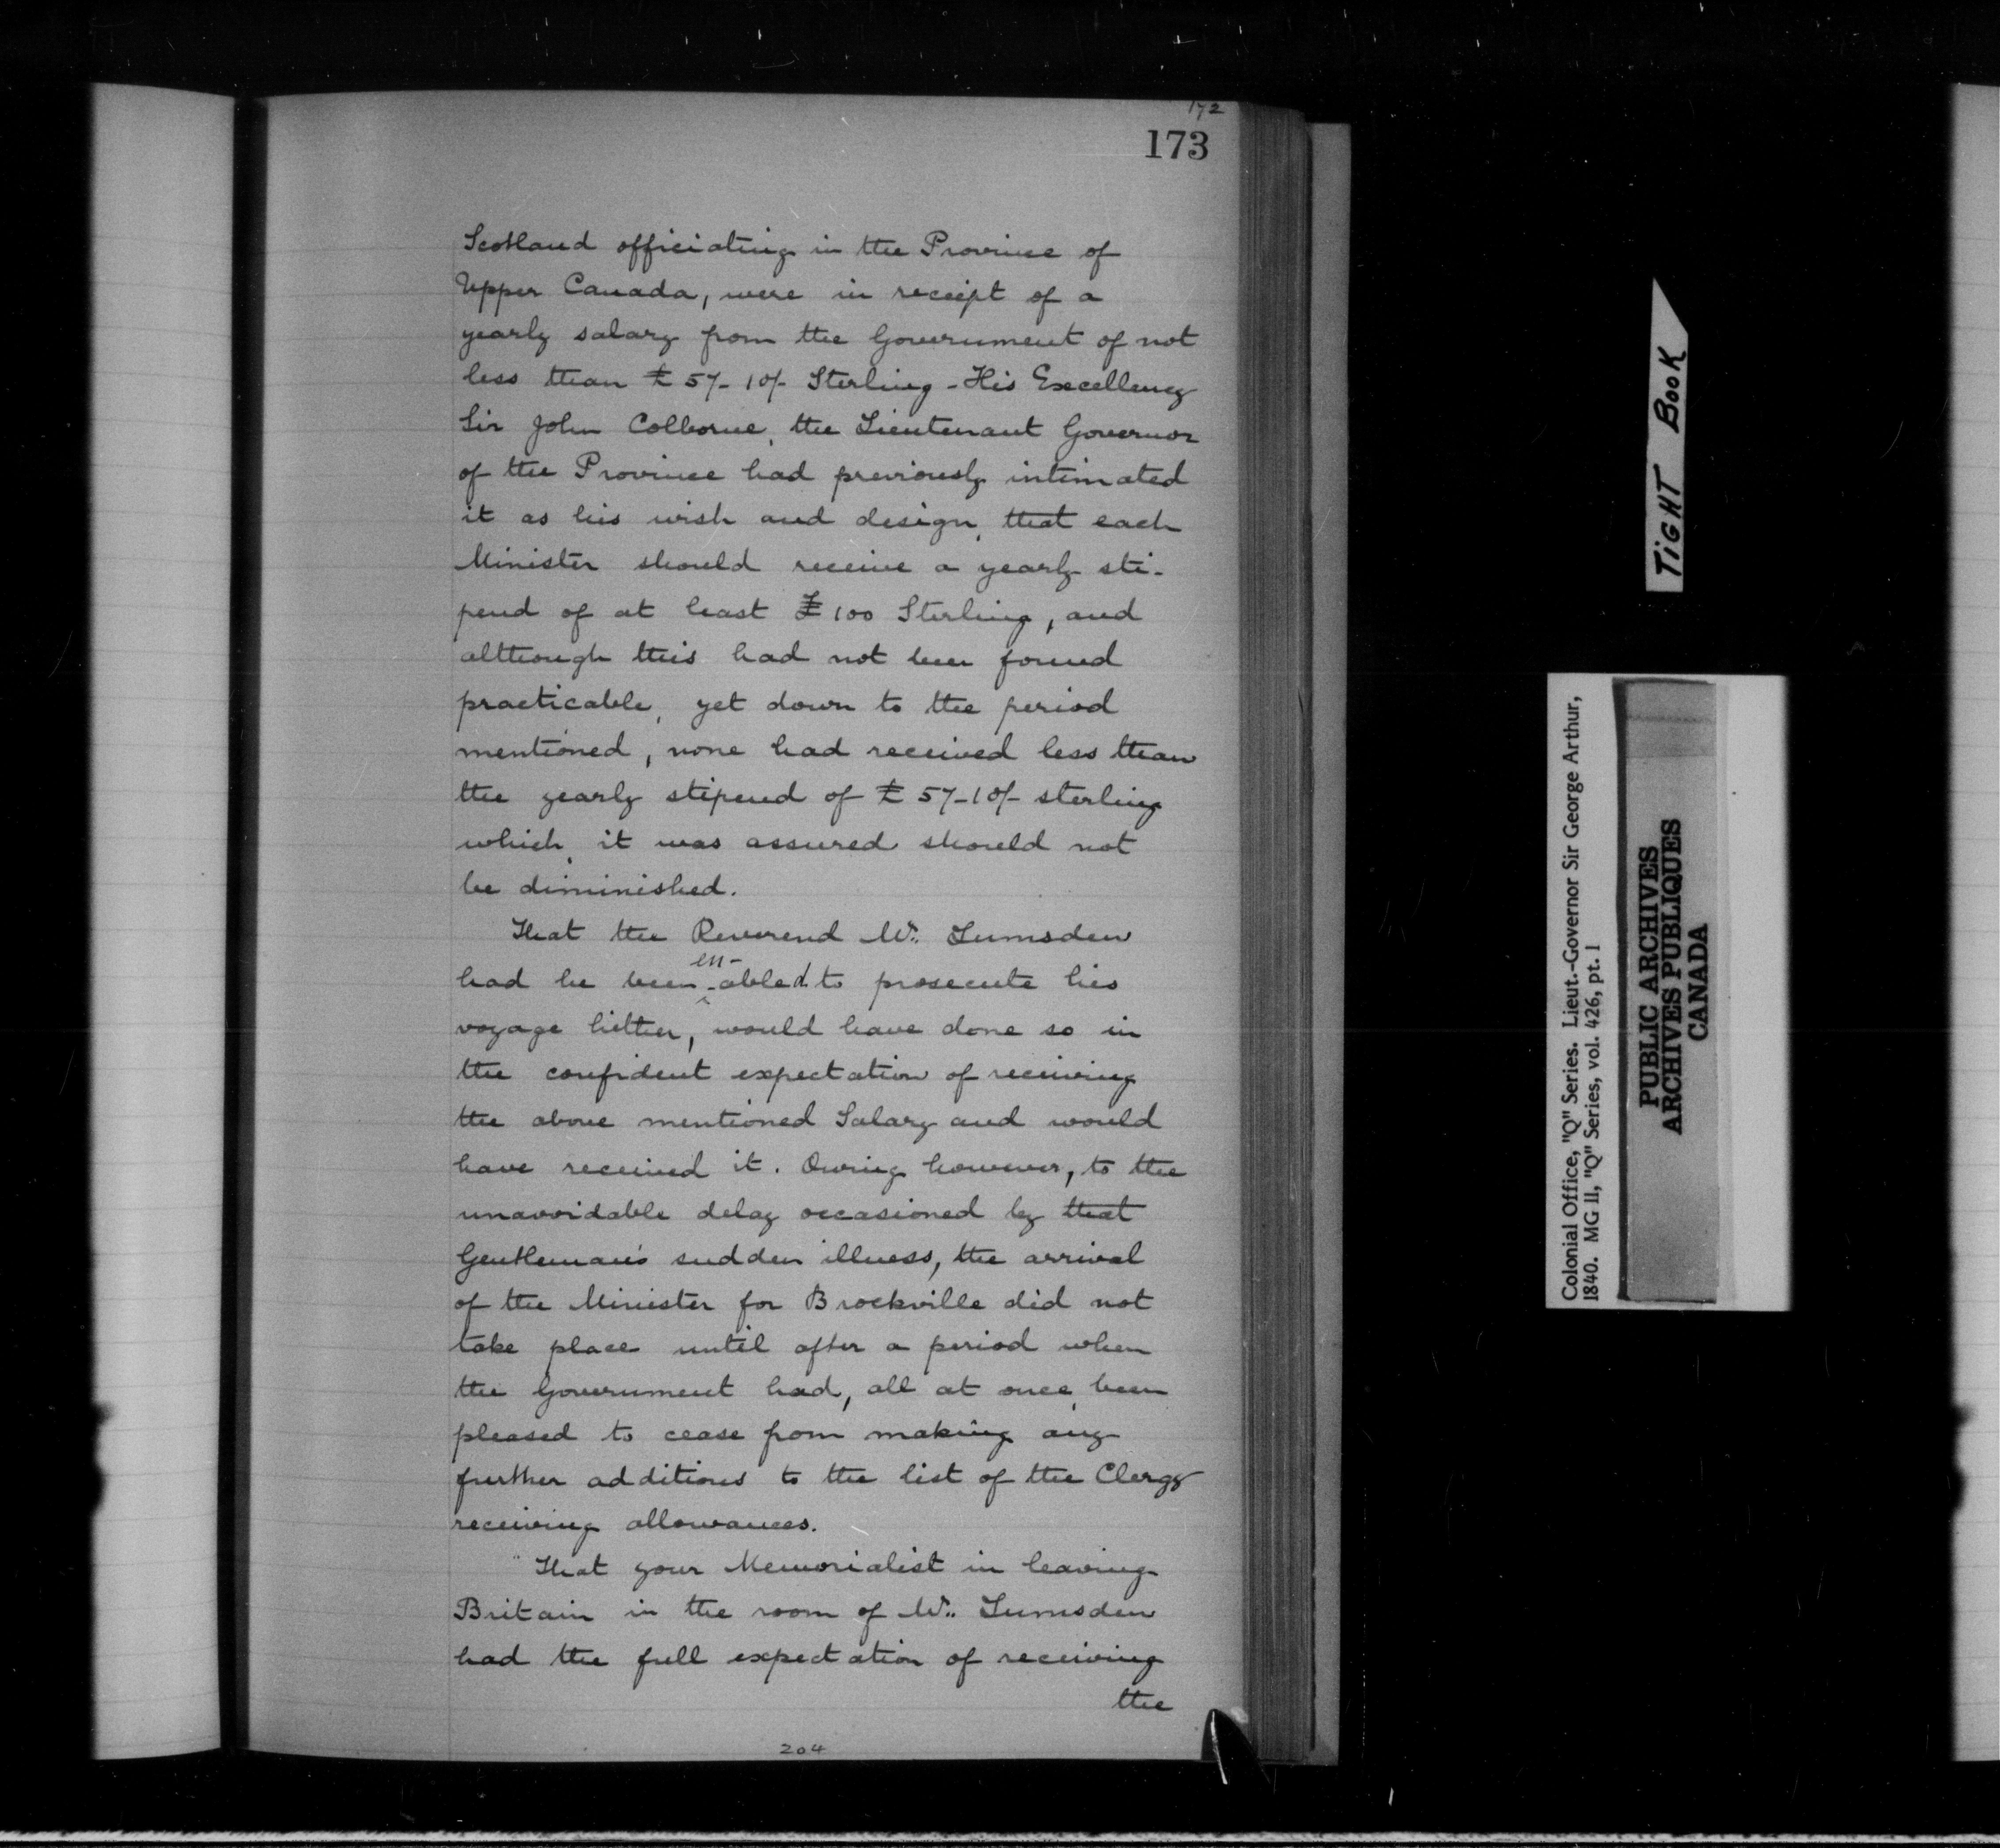 172
173
Scotland officiating in the Province of
Upper Canada, were in receipt of a
yearly salary from the Government of not
less than £57-10/- Sterling - His Excellency
Sir John Colborne, the Lieutenant Governor
of the Province had previously intimated
it as his wish and design, that each
Minister should receive a yearly sti-
pend of at least £100 Sterling, and
although this had not been found
practicable, yet down to the period
mentioned, none had received less than
the yearly stipend of £57-10/- sterling
which, it was assured should not
be diminished.
That the Reverend Mr. Lumsden
had he been en-abled to prosecute his
voyage hither, would have done so in
the confident expectation of receiving
the above mentioned Salary and would
have received it. Owing however, to the
unavoidable delay occasioned by that
Gentleman's sudden illness, the arrival
of the Minister for Brockville did not
take place until after a period when
the Government had, all at once, been
pleased to cease from making any
further additions to the list of the Clergy
receiving allowances.
That your Memorialist in leaving
Britain in the room of Mr. Lumsden
had the full expectation of receiving
the
204
TIGHT BOOK
Colonial Office, "Q" Series. Lieut.-Governor Sir George Arthur,
1840. MG 11, "Q" Series, vol. 426, pt. 1
PUBLIC ARCHIVES
ARCHIVES PUBLIQUES
CANADA